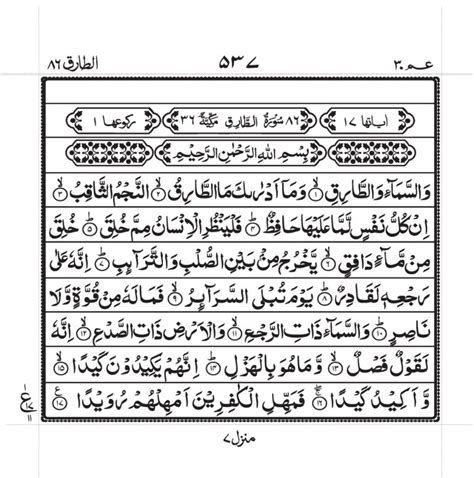 عم ٣٠ ۵۳۷ الطارق ٨٦
اٰیاتها ١٧ ٨٦ سُوۡرَةُ الطَّارِقِ مَكِّيَّةٌ ٣٦ رکوعها ١
بِسۡمِ اللهِ الرَّحۡمٰنِ الرَّحِيۡمِ
وَالسَّمَآءِ وَالطَّارِقِۙ ١ وَمَاۤ اَدۡرٰٮكَ مَا الطَّارِقُۙ ٢ النَّجۡمُ الثَّاقِبُۙ ٣
اِنۡ كُلُّ نَفۡسٍ لَّمَّا عَلَيۡهَا حَافِظٌؕ ٤ فَلۡيَنۡظُرِ الۡاِنۡسَانُ مِمَّ خُلِقَؕ ٥ خُلِقَ
مِنۡ مَّآءٍ دَافِقٍۙ ٦ يَّخۡرُجُ مِنۡۢ بَيۡنِ الصُّلۡبِ وَالتَّرَآٮِٕبِؕ ٧ اِنَّهٗ عَلٰى
رَجۡعِهٖ لَقَادِرٌؕ ٨ يَوۡمَ تُبۡلَى السَّرَآٮِٕرُۙ ٩ فَمَا لَهٗ مِنۡ قُوَّةٍ وَّلَا
نَاصِرٍؕ ١٠ وَالسَّمَآءِ ذَاتِ الرَّجۡعِۙ ١١ وَالۡاَرۡضِ ذَاتِ الصَّدۡعِۙ ١٢ اِنَّهٗ
لَقَوۡلٌ فَصۡلٌۙ ١٣ وَّمَا هُوَ بِالۡهَزۡلِؕ ١٤ اِنَّهُمۡ يَكِيۡدُوۡنَ كَيۡدًاۙ ١٥
وَّاَكِيۡدُ كَيۡدًاۚۖ ١٦ فَمَهِّلِ الۡكٰفِرِيۡنَ اَمۡهِلۡهُمۡ رُوَيۡدًا ١٧
ع ١٧ ١١
منزل ٧